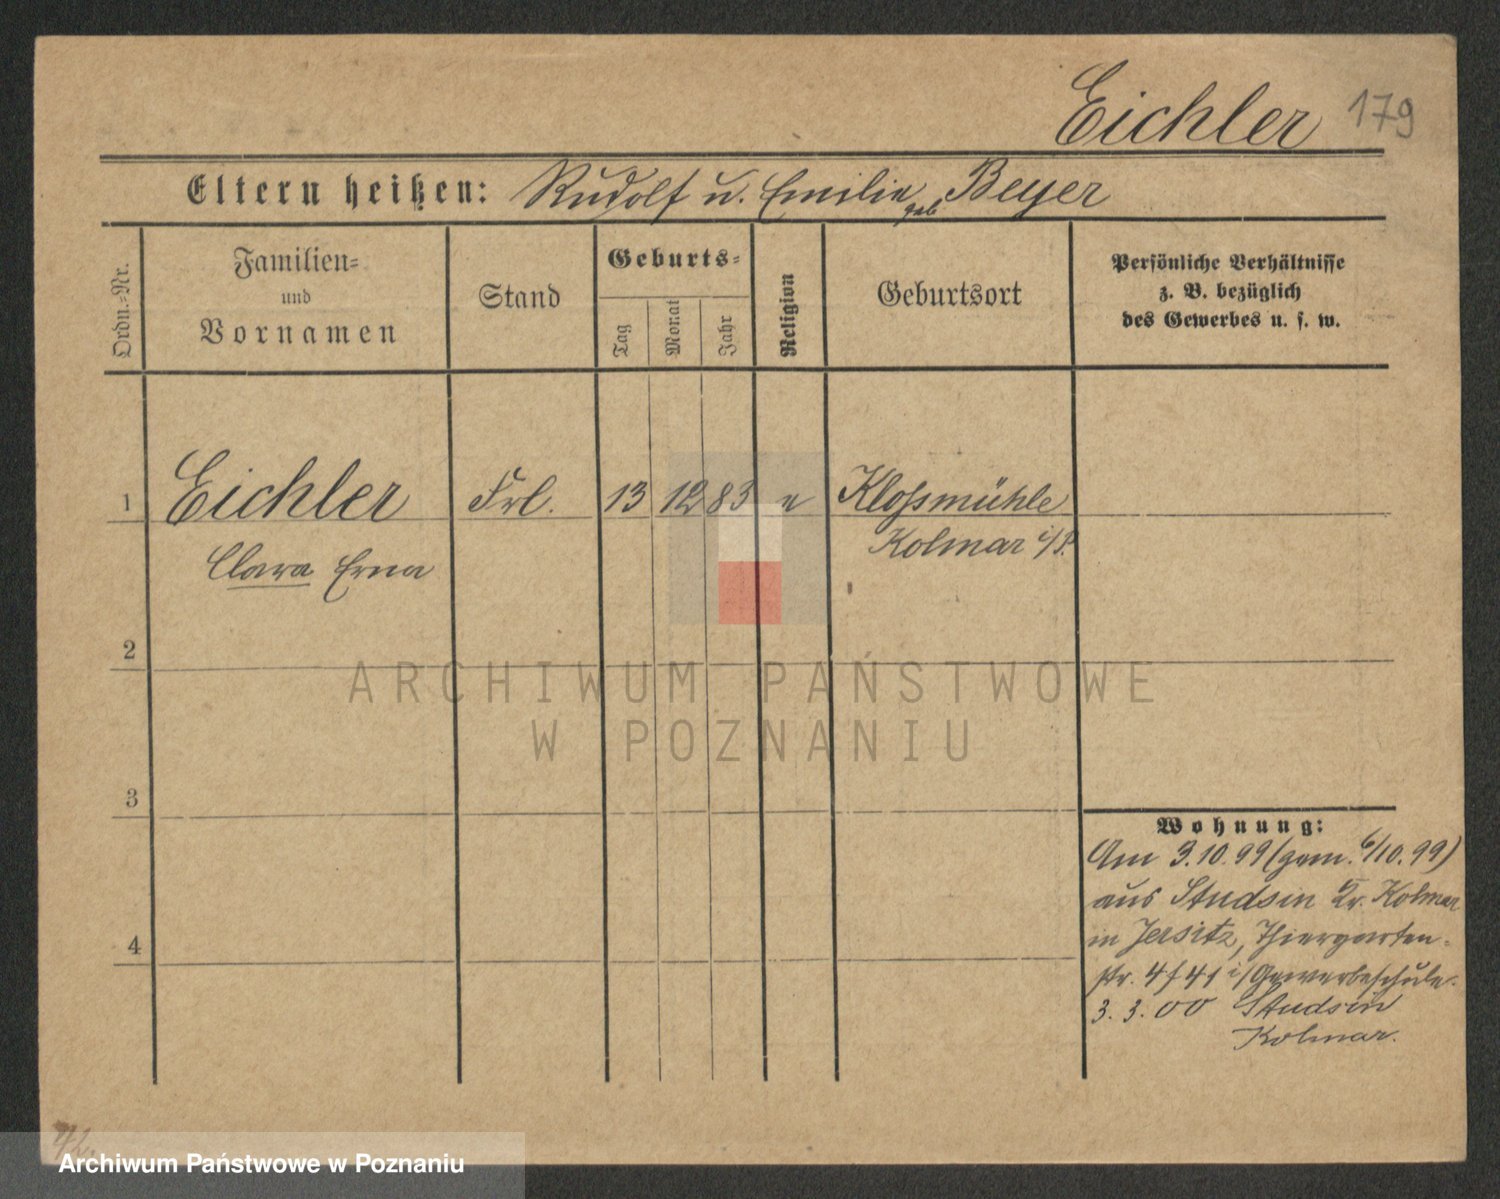 Eichler 179
Eltern heißen: Rudolf u. Emilie geb Beyer
Ordn.=Nr.
Familien=
und
Vornamen
Stand
Geburts=
Tag
Monat
Jahr
Religion
Geburtsort
Persönliche Verhältnisse
z. B. bezüglich
des Gewerbes u. s. w.
1 Eichler Frl. 13 12 83 Klossmühle
Clara Erna Kolmar i/P.
2
ARCHIWUM PAŃSTWOWE
W POZNANIU
3
4
Wohnung:
Am 3.10.99 (gem. 6/10.99)
aus Studsin Kr. Kolmar
in Jersitz, Thiergarten=
str. 4 i/Gewerbeschule.
3. 3. 00 Studsin
Kolmar.
Archiwum Państwowe w Poznaniu